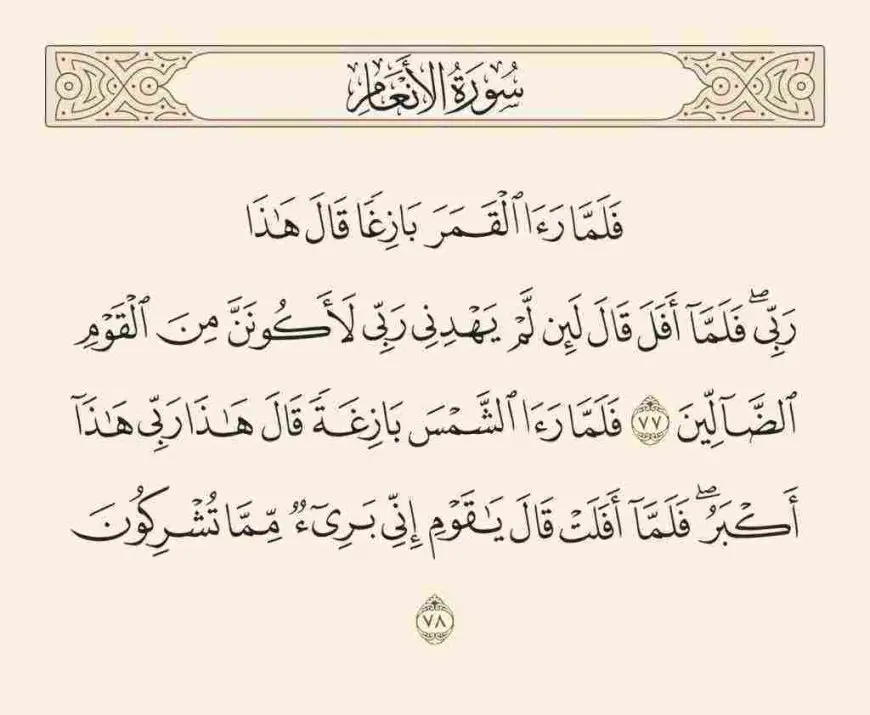 سُورَةُ الأَنْعَامِ
فَلَمَّا رَءَا ٱلْقَمَرَ بَازِغًا قَالَ هَٰذَا
رَبِّىۖ فَلَمَّآ أَفَلَ قَالَ لَئِن لَّمْ يَهْدِنِى رَبِّى لَأَكُونَنَّ مِنَ ٱلْقَوْمِ
ٱلضَّآلِّينَ ٧٧ فَلَمَّا رَءَا ٱلشَّمْسَ بَازِغَةً قَالَ هَٰذَا رَبِّى هَٰذَآ
أَكْبَرُۖ فَلَمَّآ أَفَلَتْ قَالَ يَٰقَوْمِ إِنِّى بَرِىٓءٌ مِّمَّا تُشْرِكُونَ
٧٨